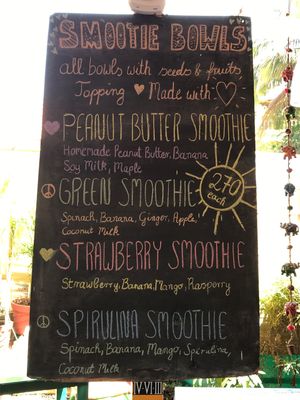 SMOOTIE BOWLS
all bowls with seeds & fruits
Topping Made with
PEANUT BUTTER SMOOTHIE
Homemade Peanut Butter, Banana
Soy Milk, Maple
270
each
GREEN SMOOTHIE
Spinach, Banana, Ginger, Apple,
Coconut Milk
STRAWBERRY SMOOTHIE
Strawberry, Banana, Mango, Rasporry
SPIRULINA SMOOTHIE
Spinach, Banana, Mango, Spirulina,
Coconut Milk